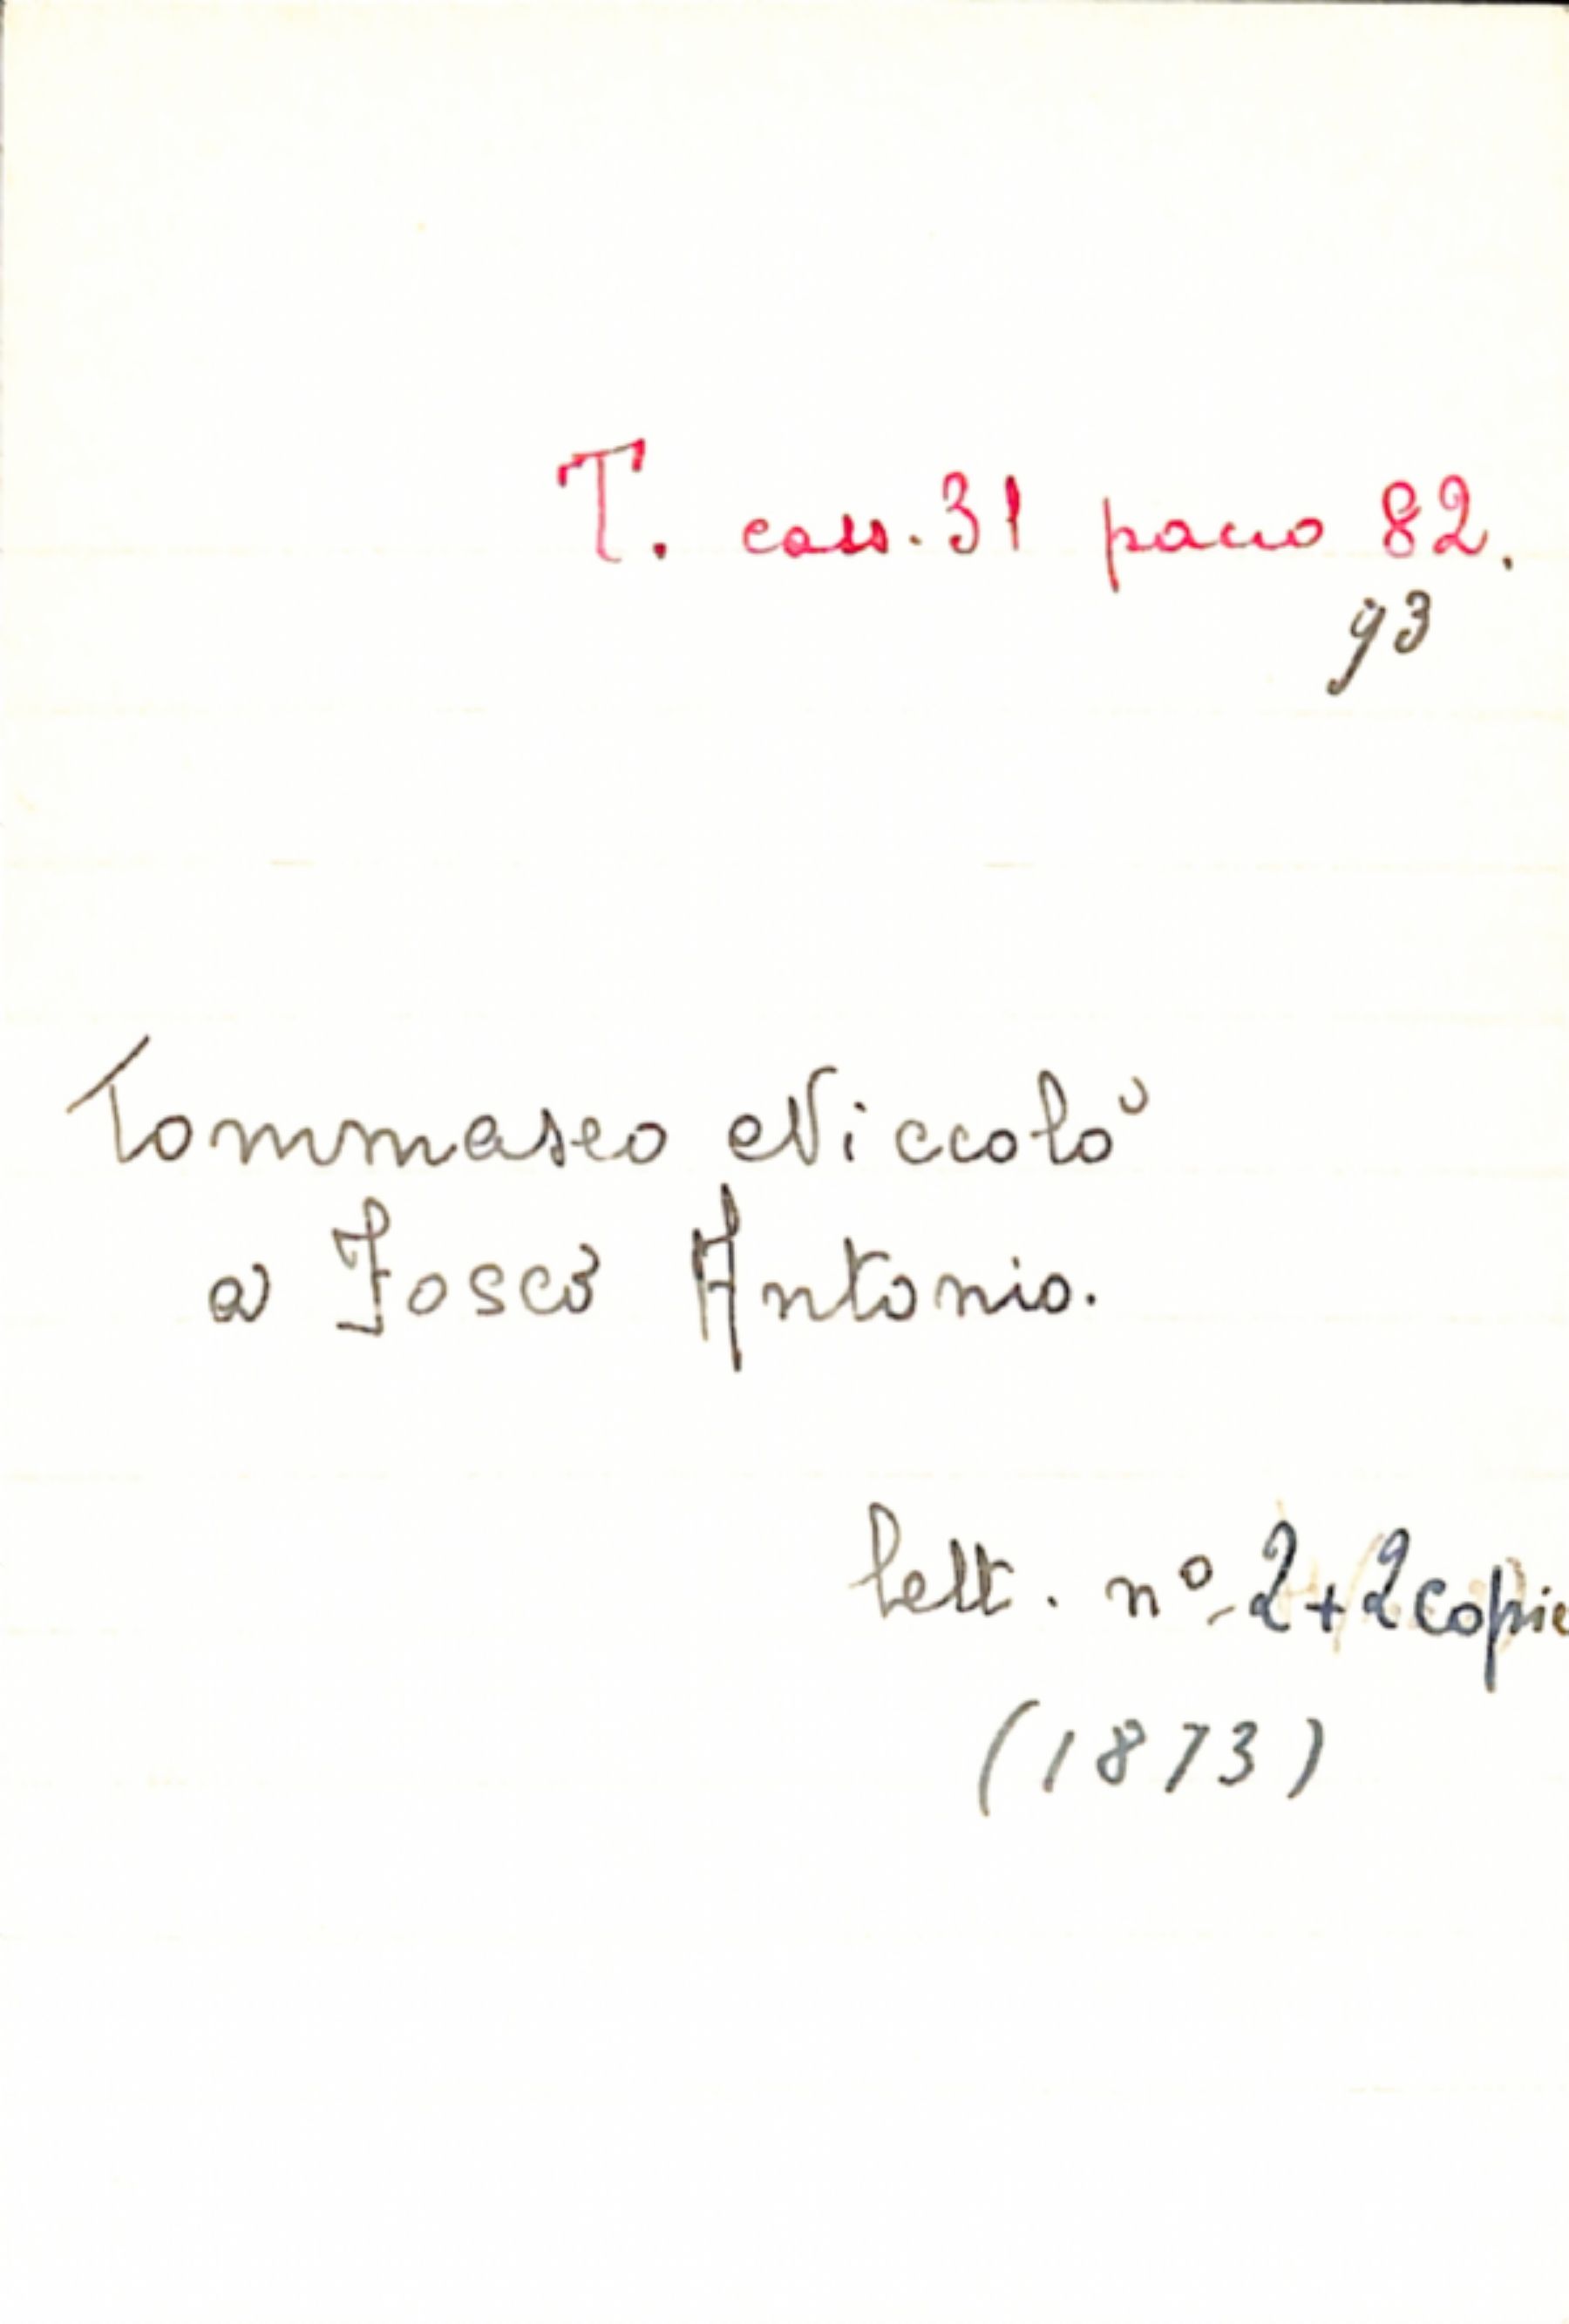 T. cass. 31 pacco 82.
93
Tommaseo Niccolò
a Foscò Antonio.
lett. nº 2 + 2 copie
(1873)